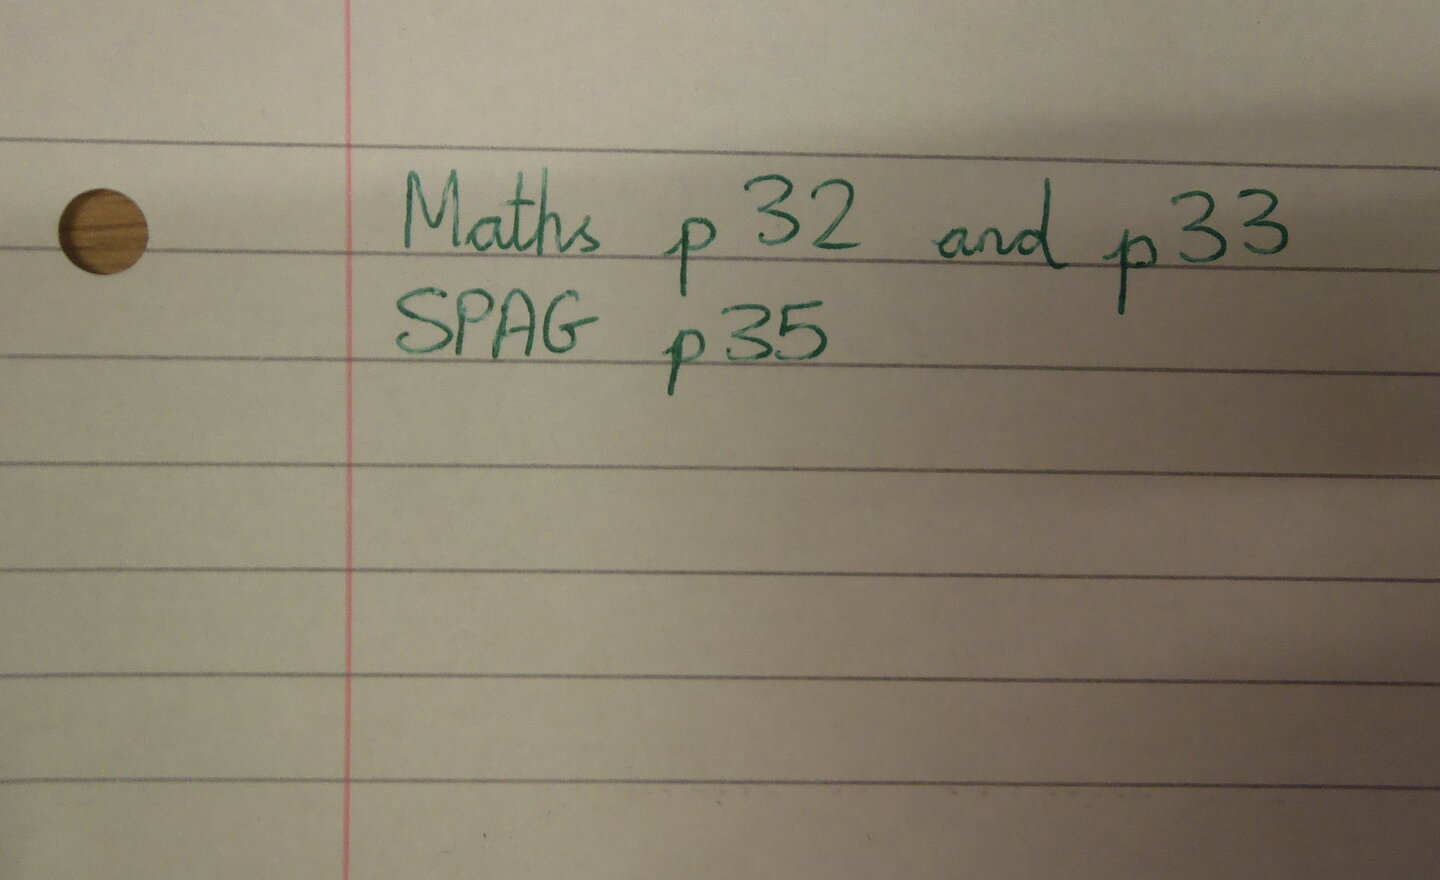 Maths p 32 and p 33
SPAG p 35